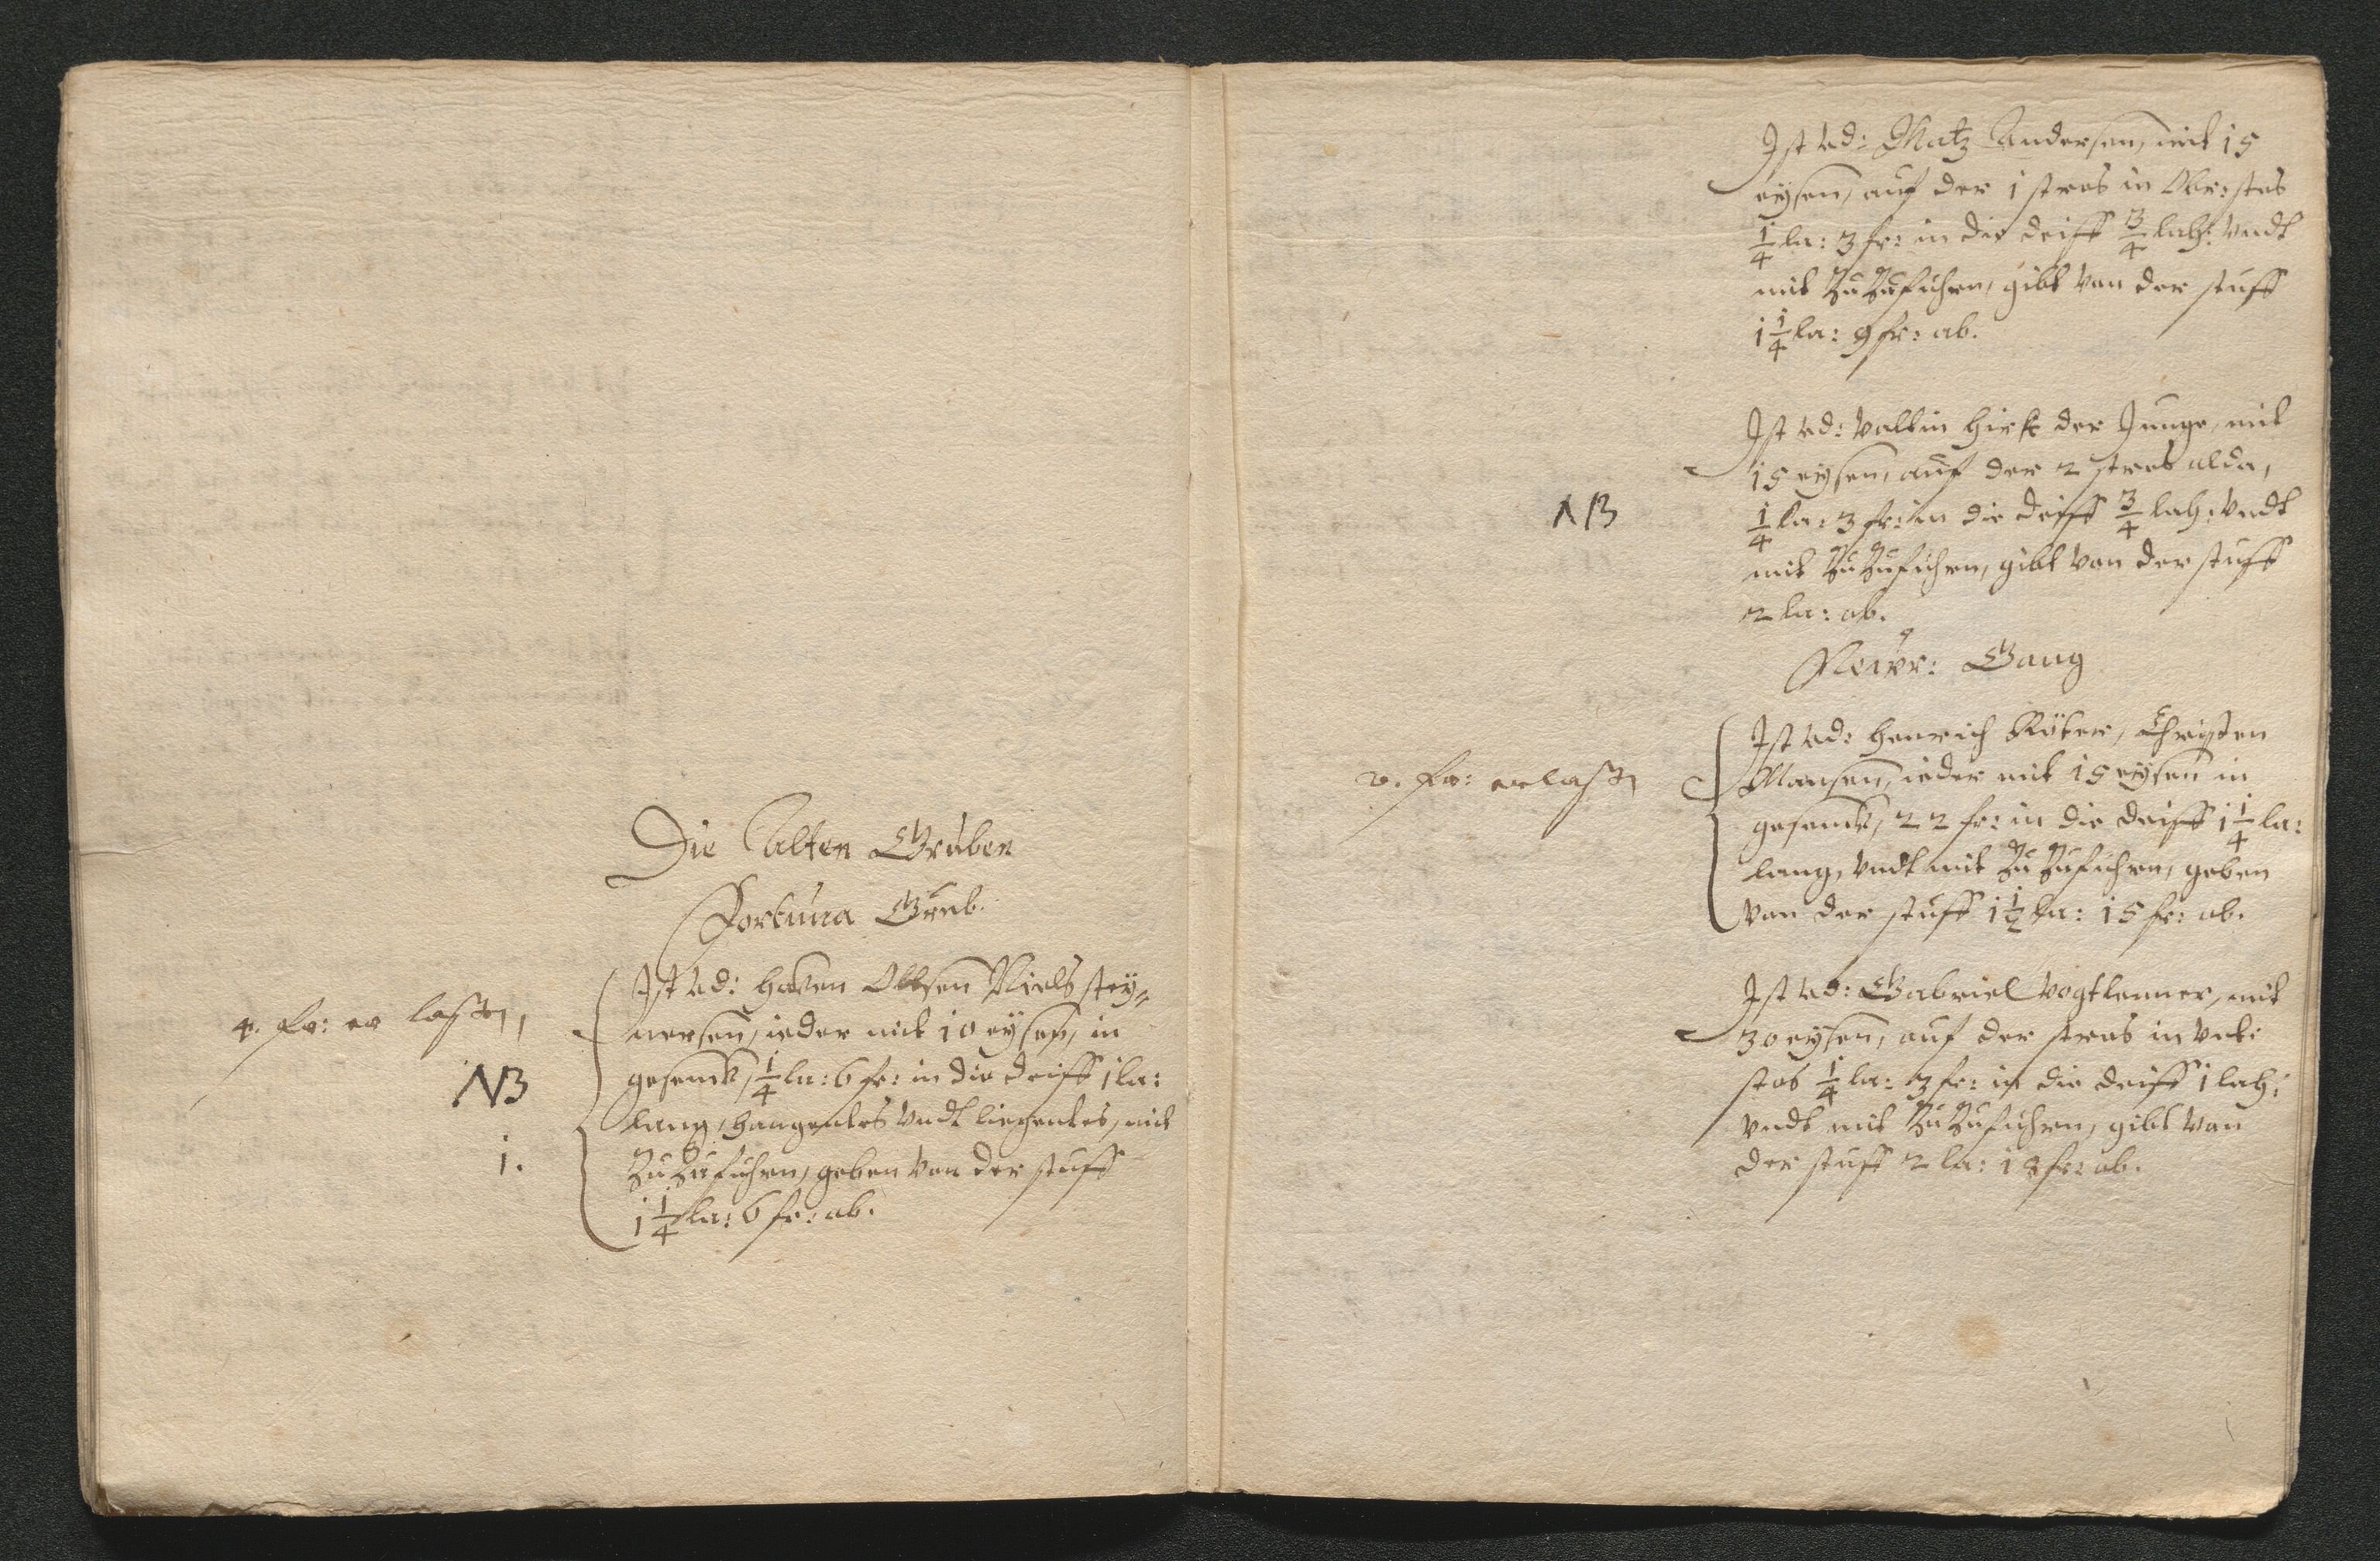 Die Alten Gruben
Fortuna Grub.
4. fr: er lassen,
NB
1.
Ist vd: Haven Olssen Niels stey=
nersen, ieder mit 10 eysen, in
gesenck, 1/4 la: 6 fr: in die deiff 1 la:
lang, hangentes vndt liegentes, mit
Zu Zufuhren, geben von der stuff
1 1/4 la: 6 fr: ab.
Ist vd: Matz Andersen, mit 15
eysen, auf der 1 stros in Obr: stos
1/4 la: 3 fr: in die deiff 3/4 lah: vndt
mit Zu Zufuhren, gibt von der stuff
1 1/4 la: 9 fr: ab.
NB
Ist vd: Valtin Hirk der Junge, mit
15 eysen, auf der 2 stros alda,
1/4 la: 3 fr: in die deiff 3/4 lah: vndt
mit Zu Zufuhren, gibt von der stuff
2 la: ab.
Neüer: Gang
2. fr: erlassen
Ist vd: Henrich Röter, Christen
Mansen, ieder mit 15 eysen in
gesenck, 22 fr: in die deiff 1 1/4 la:
lang, vndt mit Zu Zufuhren, geben
von der stuff 1 1/2 la: 15 fr: ab.
Ist vd: Gabriel Vogtlenner, mit
30 eysen, auf der stros in vnt:
stos 1/4 la: 3 fr: in die deiff 1 lah:
vndt mit Zu Zufuhren, gibt von
der stuff 2 la: 18 fr: ab.